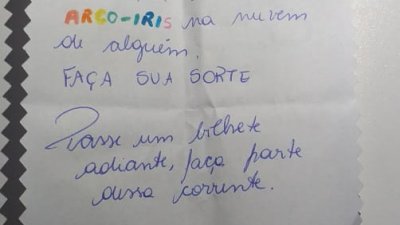 ARÇO-IRIS na nuvem
de alguém.
FAÇA SUA SORTE
Passe um bilhete
adiante, faça parte
dessa corrente.